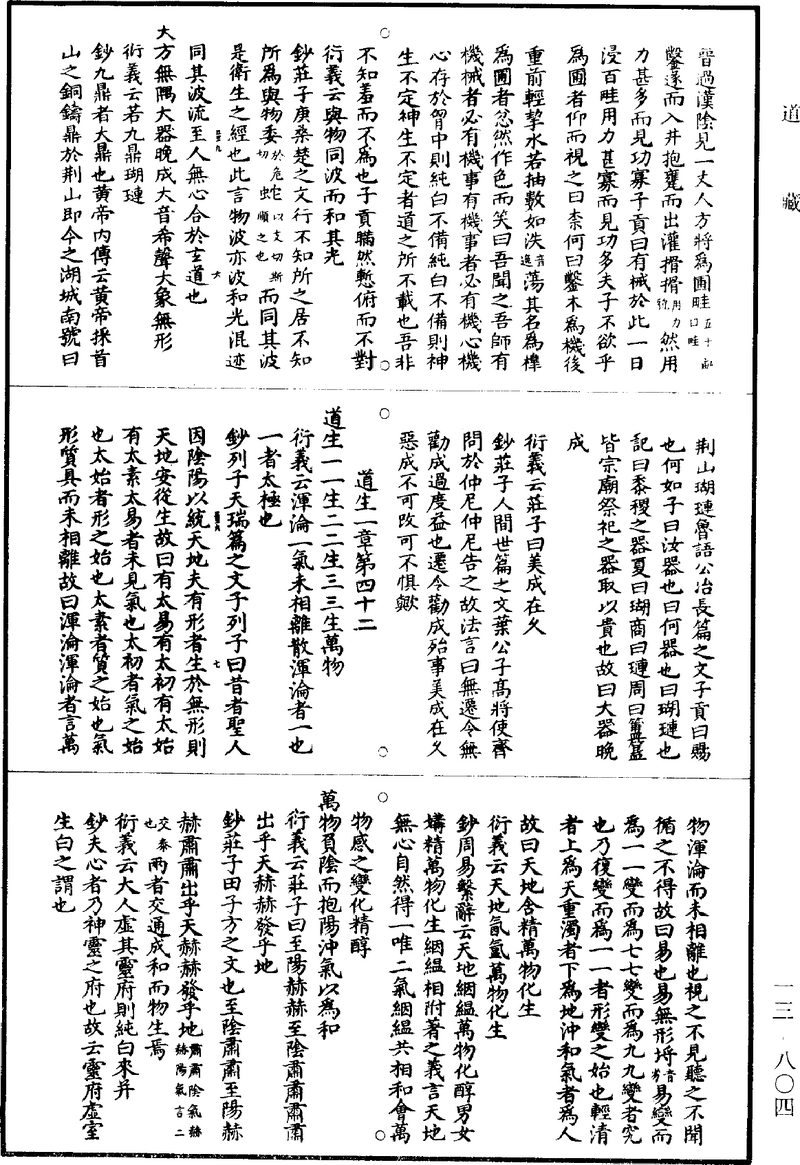 道藏
嘗過漢陰見一丈人方將為圃畦五十畝曰畦
鑿遂而入井抱甕而出灌搰搰用力行然用
力甚多而見功寡子貢曰有械於此一日
浸百畦用力甚寡而見功多夫子不欲乎
為圃者仰而視之曰柰何曰鑿木為機後
重前輕挈水若抽數如泆音逸蕩其名為槔
為圃者忽然作色而笑曰吾聞之吾師有
機械者必有機事有機事者必有機心機
心存於胷中則純白不備純白不備則神
生不定神生不定者道之所不載也吾非
不知羞而不為也子貢瞞然慙俯而不對
衍義云與物同波而和其光
鈔莊子庚桑楚之文行不知所之居不知
所為與物委於危切蛇以支切斯順之也而同其波
是衛生之經也此言物波亦波和光混迹
同其波流至人無心合於玄道也
大方無隅大器晚成大音希聲大象無形
衍義云若九鼎瑚璉
鈔九鼎者大鼎也黄帝内傳云黄帝採首
山之銅鑄鼎於荆山即今之湖城南號曰
荆山瑚璉魯語公冶長篇之文子貢曰賜
也何如子曰汝器也曰何器也曰瑚璉也
記曰黍稷之器夏曰瑚商曰璉周曰簠簋
皆宗廟祭祀之器取以貴也故曰大器晚
成
衍義云莊子曰美成在久
鈔莊子人間世篇之文葉公子高將使齊
問於仲尼仲尼告之故法言曰無遷令無
勸成過度益也遷令勸成殆事美成在久
惡成不可改可不惧歟
道生一章第四十二
道生一一生二二生三三生萬物
衍義云渾淪一氣未相離散渾淪者一也
一者太極也
鈔列子天瑞篇之文子列子曰昔者聖人
因陰陽以統天地夫有形者生於無形則
天地安從生故曰有太易有太初有太始
有太素太易者未見氣也太初者氣之始
也太始者形之始也太素者質之始也氣
形質具而未相離故曰渾淪渾淪者言萬
物渾淪而未相離也視之不見聽之不聞
循之不得故曰易也易無形埒音劣易變而
為一一變而為七七變而為九九變者究
也乃復變而為一一者形變之始也輕清
者上為天重濁者下為地沖和氣者為人
故曰天地含精萬物化生
衍義云天地氤氳萬物化生
鈔周易繫辭云天地絪縕萬物化醇男女
媾精萬物化生絪縕相附著之義言天地
無心自然得一唯二氣絪縕共相和會萬
物感之變化精醇
萬物負陰而抱陽沖氣以為和
衍義云莊子曰至陽赫赫至陰肅肅肅肅
出乎天赫赫發乎地
鈔莊子田子方之文也至陰肅肅至陽赫
赫肅肅出乎天赫赫發乎地肅肅陰氣赫赫陽氣言二
交泰也兩者交通成和而物生焉
衍義云大人虛其靈府則純白來并
鈔夫心者乃神靈之府也故云靈府虛室
生白之謂也
一三‧八〇四